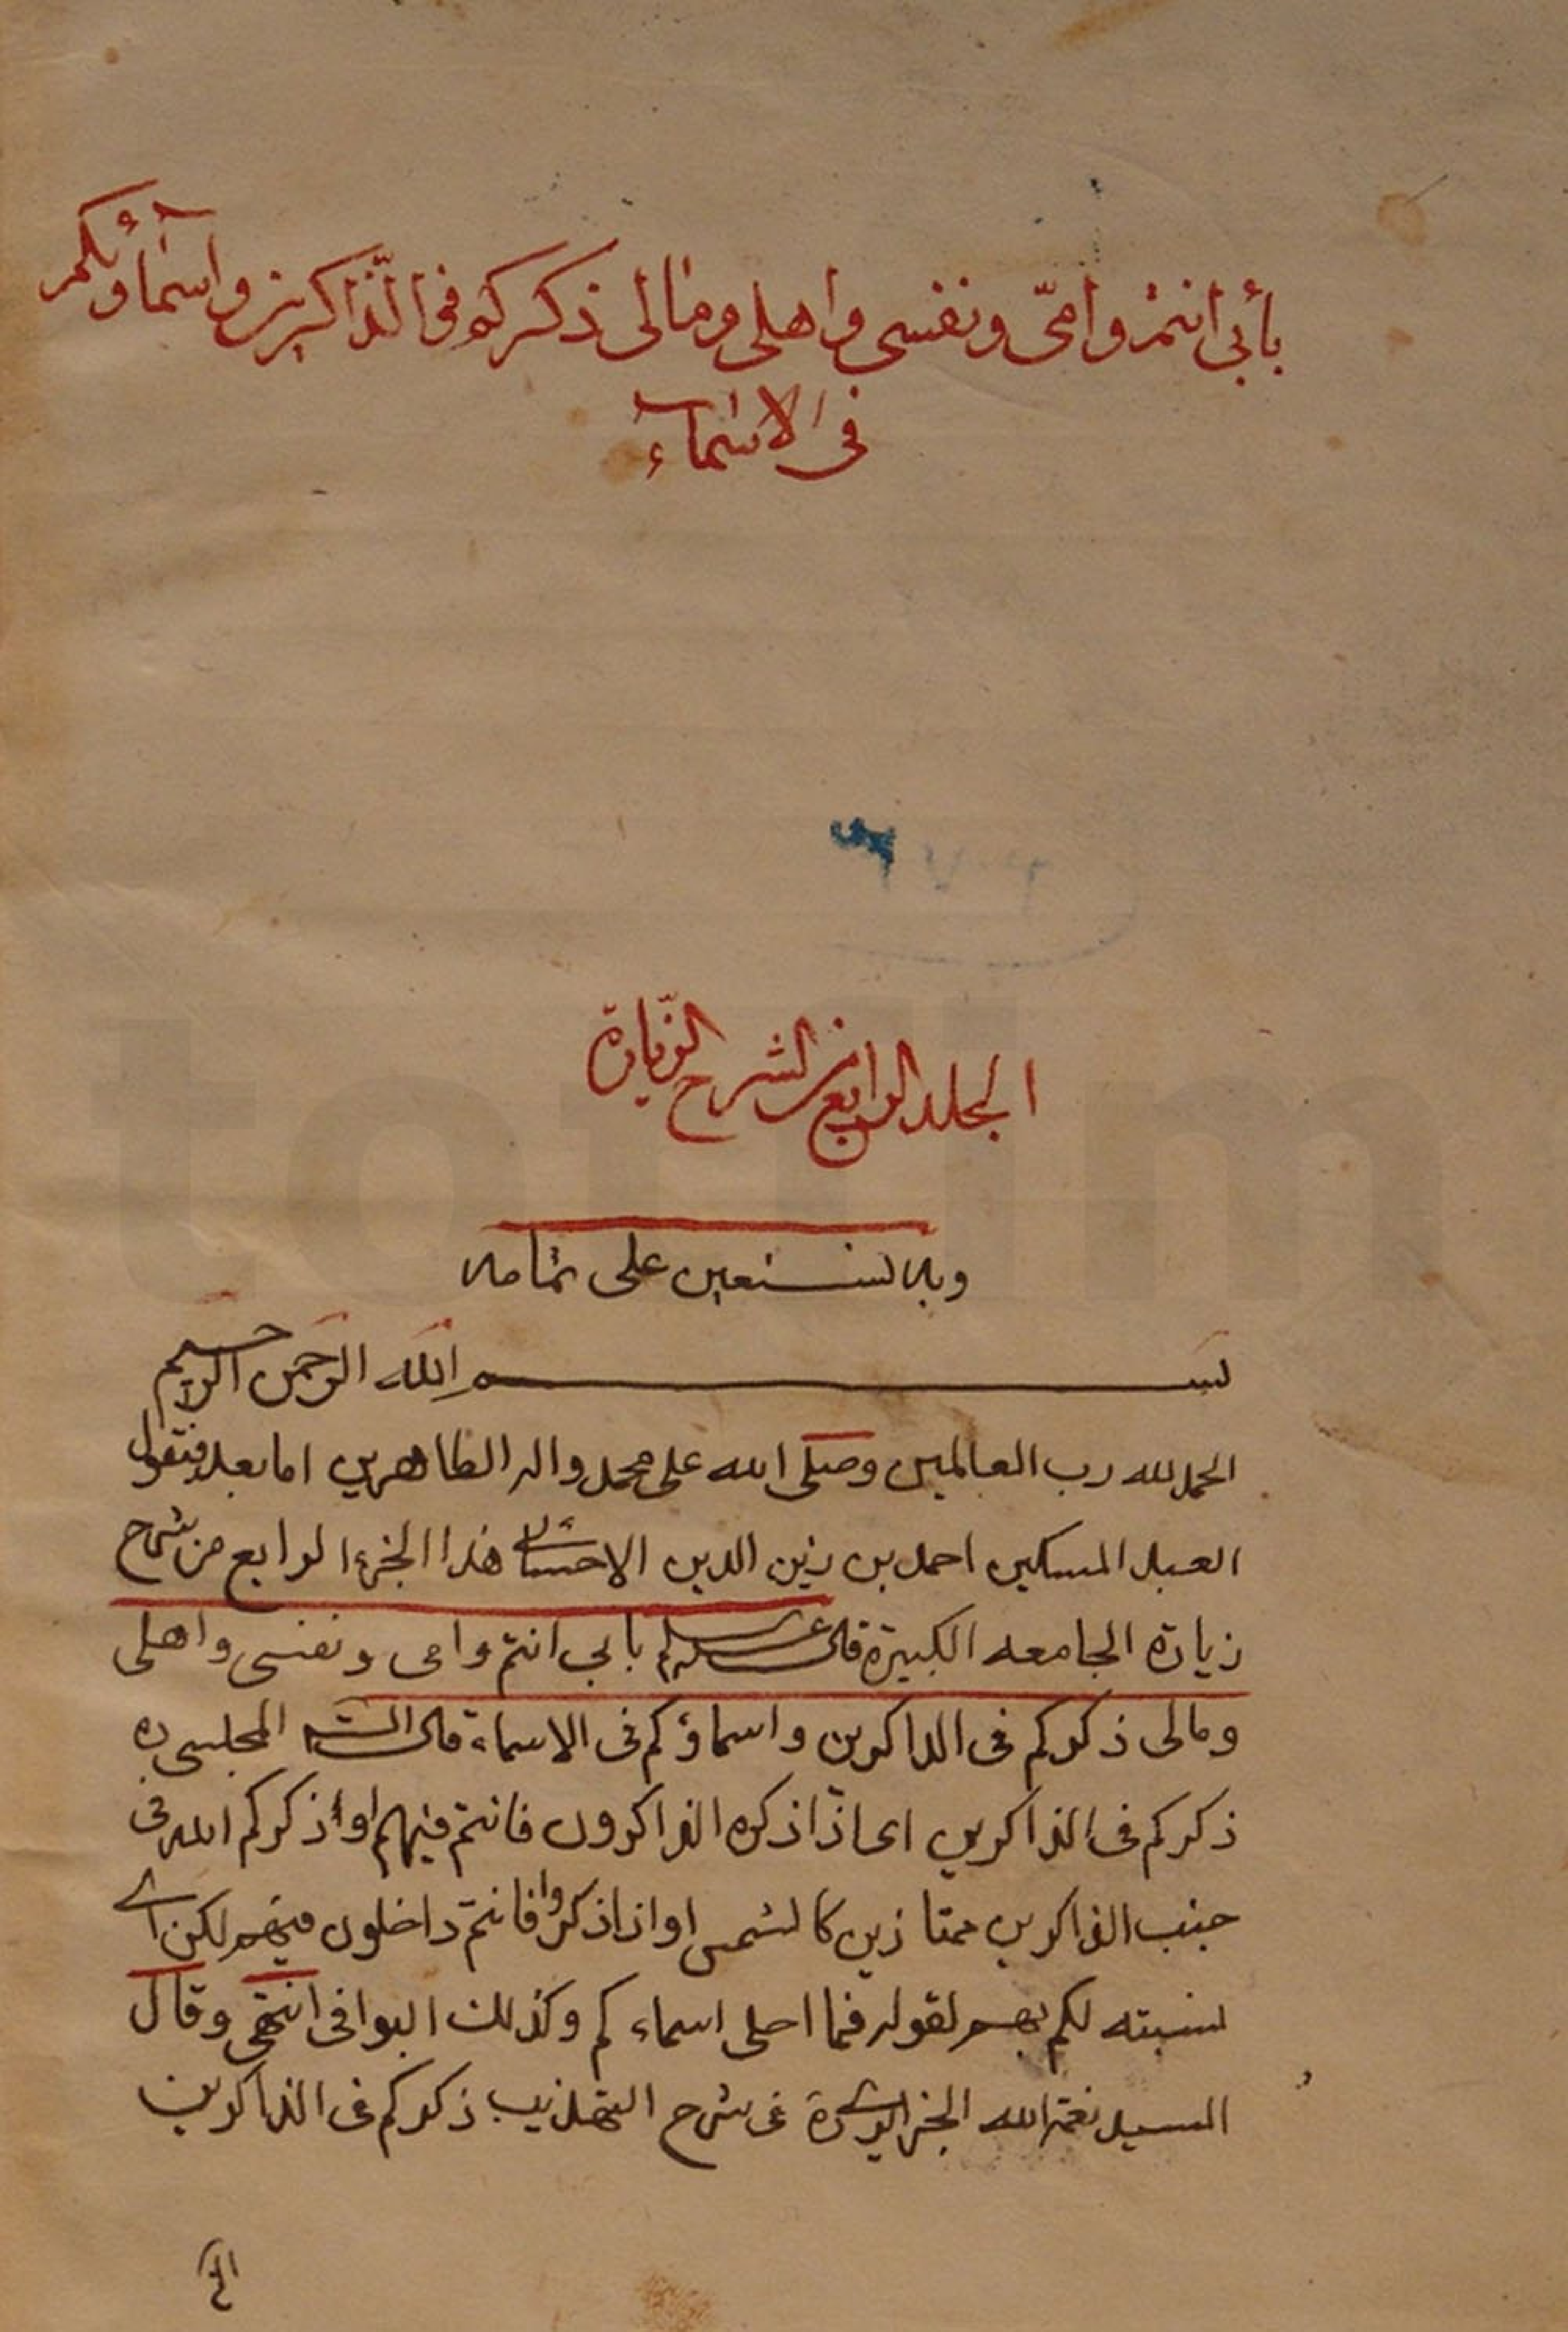 بأبي انتم وامّي ونفسي واهلي ومالي ذكركم في الذّاكرين واسماؤكم
في الاسماء
الجلد الرابع من الشرح الزّيارة
وبه نستعين على تمامه
بسم الله الرحمن الرحيم
الحمد لله رب العالمين وصلى الله على محمد واله الطاهرين اما بعد فيقول
العبد المسكين احمد بن زين الدين الاحسائي هذا الجزء الرابع من شرح
زيارة الجامعه الكبيرة قال عليه السلام بابي انتم وامي ونفسي واهلي
ومالي ذكركم في الذاكرين واسماؤكم في الاسماء قال الشارح المجلسي ره
ذكركم في الذاكرين اى اذا ذكره الذاكرون فانتم فيهم او اذكركم الله في
جنب الذاكرين ممتازين كالشمس او اذا ذكروا فانتم داخلون فيهم لكن اي
نسبته لكم بهم لقوله فما احلى اسماءكم وكذلك البواقي انتهى وقال
السيد نعمة الله الجزايري ره في شرح التهذيب ذكركم في الذاكرين